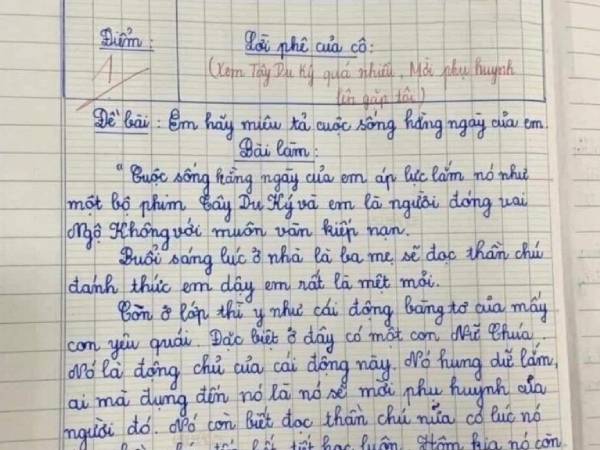 Điểm:
Lời phê của cô:
1
(Xem Tây Du Ký quá nhiều, Mời phụ huynh
lên gặp tôi)
Đề bài: Em hãy miêu tả cuộc sống hằng ngày của em.
Bài làm:
"Cuộc sống hằng ngày của em áp lực lắm nó như
một bộ phim Tây Du Ký và em là người đóng vai
Ngộ Không với muôn vàn kiếp nạn.
Buổi sáng lúc ở nhà là ba mẹ sẽ đọc thần chú
đánh thức em dậy em rất là mệt mỏi.
Còn ở lớp thì y như cái động bàng tơ của mấy
con yêu quái. Đặc biệt ở đây có một con Nữ Chúa.
Nó là động chủ của cái động này. Nó hung dữ lắm,
ai mà đụng đến nó là nó sẽ mời phụ huynh của
người đó. Nó còn biết đọc thần chú nữa có lúc nó
tiết học luôn. Hôm kia nó còn